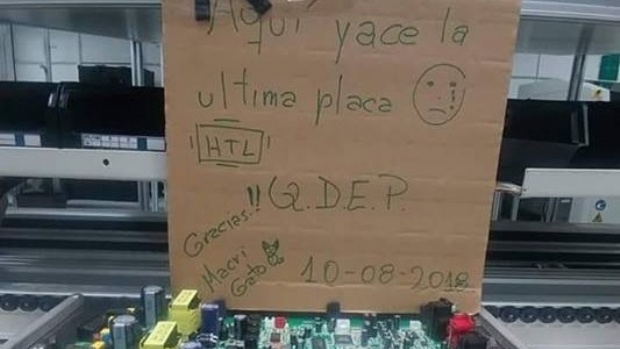 Aquí yace la
ultima placa
HTL
!! Q.D.E.P.
Gracias!!
Macri
Gato
10-08-2018